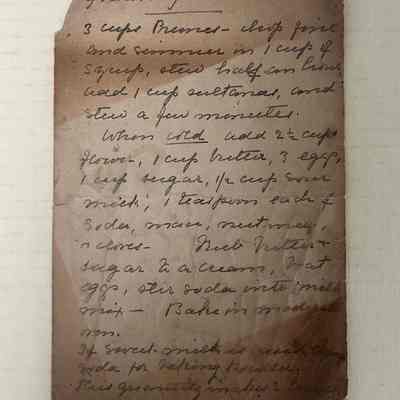 3 cups Prunes - chop fine
and simmer in 1 cup of
syrup, stew half an hour
add 1 cup sultanas, and
stew a few minutes.
When cold add 2½ cups
flour, 1 cup butter, 3 eggs,
1 cup sugar, 1/2 cup sour
milk, 1 teaspoon each of
soda, mace, nutmeg,
cloves - Rub butter +
sugar to a cream, beat
eggs, stir soda into milk
mix - Bake in moderate
oven.
If sweet milk is used
soda for baking powder
This quantity makes 2